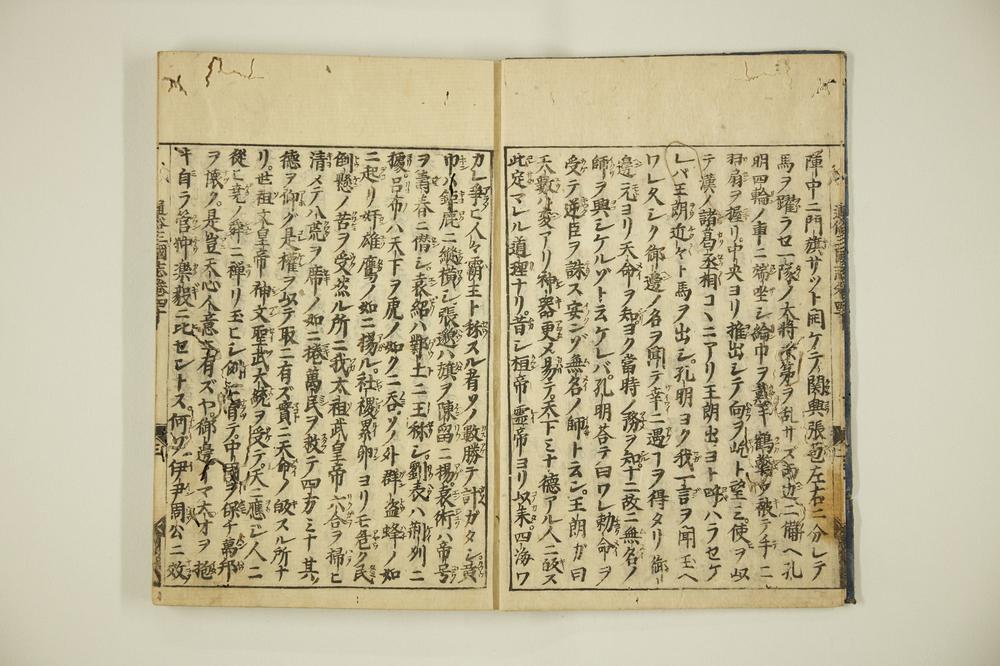 陣中ニ門旗サット開ケテ關興張苞左右ニ分レテ
馬ヲ躍ラセ一隊ノ大将次第ヲ乱サズ両辺ニ備ヘ孔
明四輪ノ車ニ端坐シ綸巾ヲ戴キ鶴氅ヲ被テ手ニ
羽扇ヲ握リ中央ヨリ推出シテ向ヲ屹ト望ミ使ヲ以
テ漢ノ諸葛丞相コヽニアリ王朗出ヨト呼ハラセケ
レバ王朗近々ト馬ヲ出シ孔明ヨク我一言ヲ聞玉ヘ
ワレ久シク御邊ノ名ヲ聞テ幸ニ遇フヿヲ得タリ御
邊元ヨリ天命ヲ知ヨク當時ノ務ヲ知ナニ故ニ無名ノ
師ヲ興シケルゾト云ケレバ孔明答テ曰ワレ勅命ヲ
受テ逆臣ヲ誅ス安ンゾ無名ノ師トセン王朗ガ曰
天數ハ変アリ神器更メ易テ天下ミナ德アル人ニ皈ス
此定マレル道理ナリ昔シ桓帝霊帝ヨリ以来四海ワ
カレ爭ヒ人々霸王ト称スル者ソノ數勝テ計ガタシ黄
巾ハ鉅鹿ニ縱横シ張邈ハ旗ヲ陳留ニ揚袁術ハ帝号
ヲ壽春ニ僣シ袁紹ハ鄴土ニ王称シ劉表ハ荊州ニ
據呂布ハ天下ヲ虎ノ如クニ呑ソノ外群盗蜂ノ如
ニ起リ奸雄鷹ノ如ニ揚ル社稷累卵ヨリモ危ク民
倒懸ノ苦ヲ受然ル所ニ我太祖武皇帝六合ヲ掃ヒ
清メテ八荒ヲ席ノ如ニ捲萬民ヲ救テ四方ミナ其
德ヲ仰グ是權ヲ以テ取ニ有ズ實ニ天命ノ皈スル所ナ
リ世祖文皇帝神文聖武大統ヲ受テ天ニ應ジ人ニ
從ヒ堯ノ舜ニ禅リ玉ヒシ例ニ習テ中國ヲ保チ萬邦
ヲ懐ク是豈天心人意ニ有ズヤ御邊イマ大才ヲ抱
キ自ラ管仲樂毅ニ比セントス何ゾ伊尹周公ニ效
通俗三國志卷四十
通俗三國志卷四十